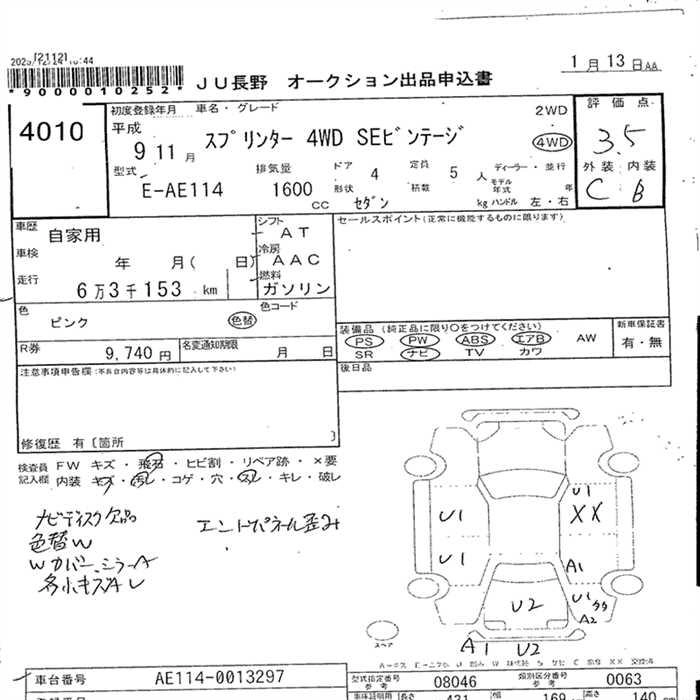 [2112]
*9000010252*
JU長野 オークション出品申込書
1月13日AA
4010
初度登録年月 車名・グレード
平成
9 11月
スプリンター 4WD SEビンテージ
2WD
4WD
評価点
3.5
外装 内装
C B
型式
E-AE114
排気量
1600
CC
ドア 4
形状 セダン
定員 5 人
積載 kg
ディーラー・並行
モデル年式 年
ハンドル 左・右
車歴 自家用
車検 年 月( 日)
走行 6万3千153 km
シフト AT
冷房 AAC
燃料 ガソリン
セールスポイント(正常に機能するものに限ります)
色 ピンク 色替
色コード
R券 9,740円
名変通知期限 月 日
装備品(純正品に限り○をつけてください)
PS PW ABS エアB AW
SR ナビ TV カワ
新車保証書
有・無
後日品
注意事項申告欄:(不具合内容等は具体的に記入して下さい)
修復歴 有〔箇所 〕
検査員 FW キズ・飛石・ヒビ割・リペア跡・×要
記入欄 内装 キズ・汚レ・コゲ・穴・スレ・キレ・破レ
ナビディスク欠品
色替W
Wカバー、ミラーA
各小キズ凹レ
エンドパネル歪み
U1
U1
U1
XX
A1
U1
A2
U2
A1 U2
スペア
車台番号 AE114-0013297
型式指定番号 参考 08046
類別区分番号 参考 0063
長さ 431
幅 169
高さ 140